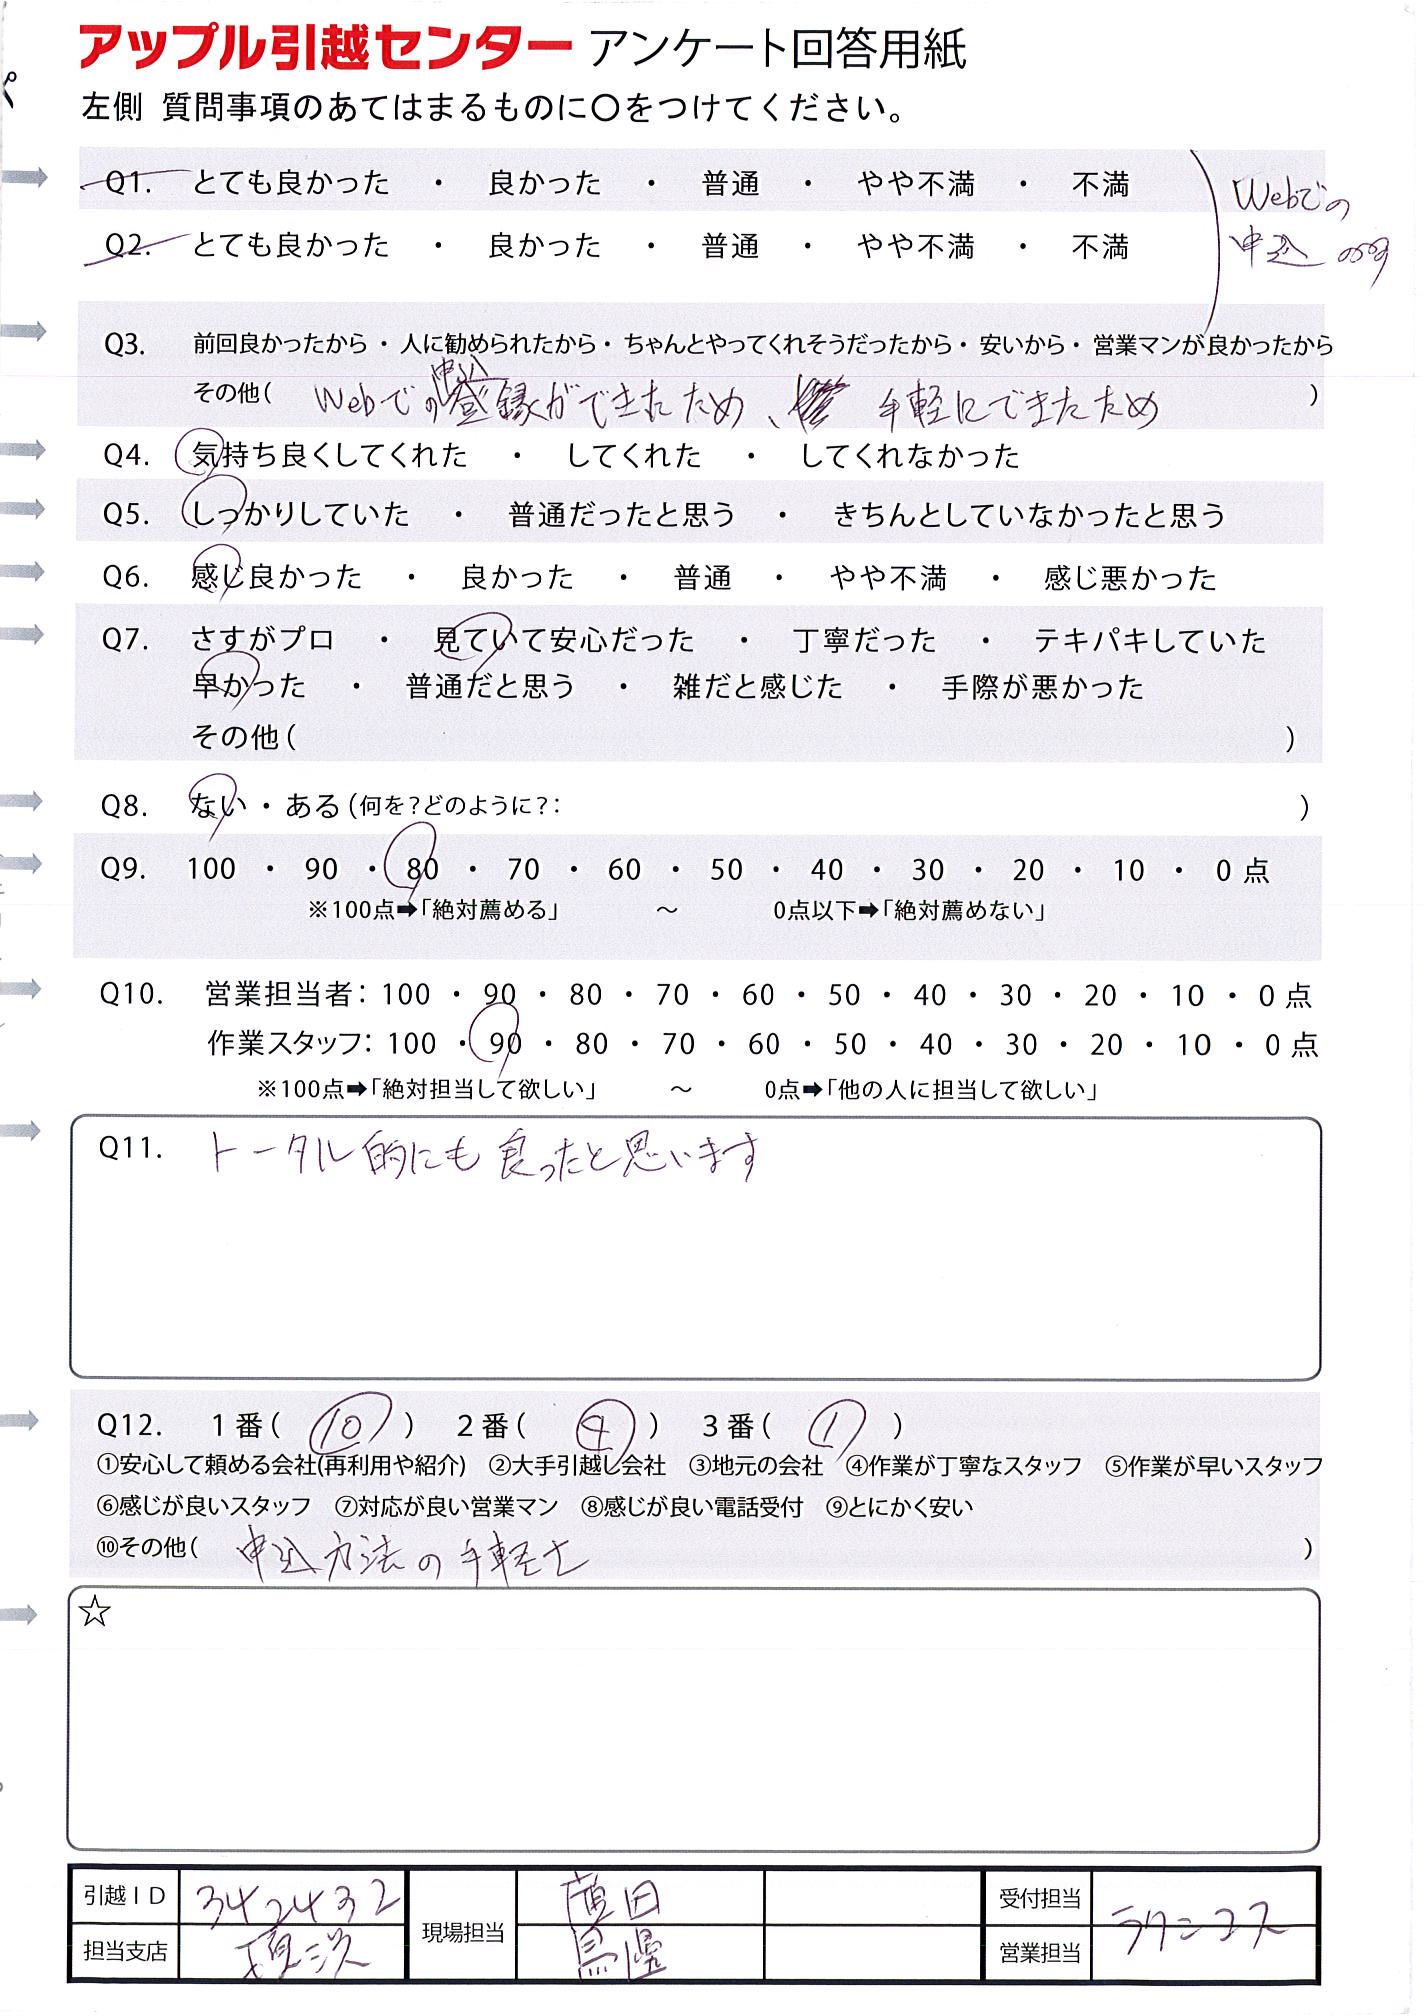 アップル引越センター アンケート回答用紙
左側 質問事項のあてはまるものに〇をつけてください。
Q1. とても良かった ・ 良かった ・ 普通 ・ やや不満 ・ 不満
Webでの
Q2. とても良かった ・ 良かった ・ 普通 ・ やや不満 ・ 不満
申込
Q3. 前回良かったから・人に勧められたから・ちゃんとやってくれそうだったから・安いから・営業マンが良かったから
申込
その他( Webでの登録ができたため、 手軽にできたため )
Q4. 気持ち良くしてくれた ・ してくれた ・ してくれなかった
Q5. しっかりしていた ・ 普通だったと思う ・ きちんとしていなかったと思う
Q6. 感じ良かった ・ 良かった ・ 普通 ・ やや不満 ・ 感じ悪かった
Q7. さすがプロ ・ 見ていて安心だった ・ 丁寧だった ・ テキパキしていた
早かった ・ 普通だと思う ・ 雑だと感じた ・ 手際が悪かった
その他( )
Q8. ない・ある(何を?どのように?: )
Q9. 100 ・ 90 ・ 80 ・ 70 ・ 60 ・ 50 ・ 40 ・ 30 ・ 20 ・ 10 ・ 0点
※100点➡「絶対薦める」 ～ 0点以下➡「絶対薦めない」
Q10. 営業担当者: 100 ・ 90 ・ 80 ・ 70 ・ 60 ・ 50 ・ 40 ・ 30 ・ 20 ・ 10 ・ 0点
作業スタッフ: 100 ・ 90 ・ 80 ・ 70 ・ 60 ・ 50 ・ 40 ・ 30 ・ 20 ・ 10 ・ 0点
※100点➡「絶対担当して欲しい」 ～ 0点➡「他の人に担当して欲しい」
Q11. トータル的にも良ったと思います
Q12. 1番( 10 ) 2番( 4 ) 3番( 1 )
①安心して頼める会社(再利用や紹介) ②大手引越し会社 ③地元の会社 ④作業が丁寧なスタッフ ⑤作業が早いスタッフ
⑥感じが良いスタッフ ⑦対応が良い営業マン ⑧感じが良い電話受付 ⑨とにかく安い
⑩その他( 申込方法の手軽さ )
☆
引越ID 342432 現場担当 受付担当
担当支店 営業担当 ラクニコス